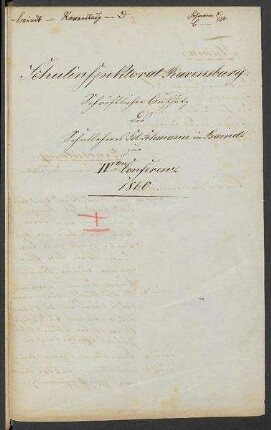 Baindt – Ravensburg – D
Schulinspektorat Ravensburg.
Schriftlicher Aufsatz
des
Schullehrers in Baindt
zur
II ten Conferenz
1860
I